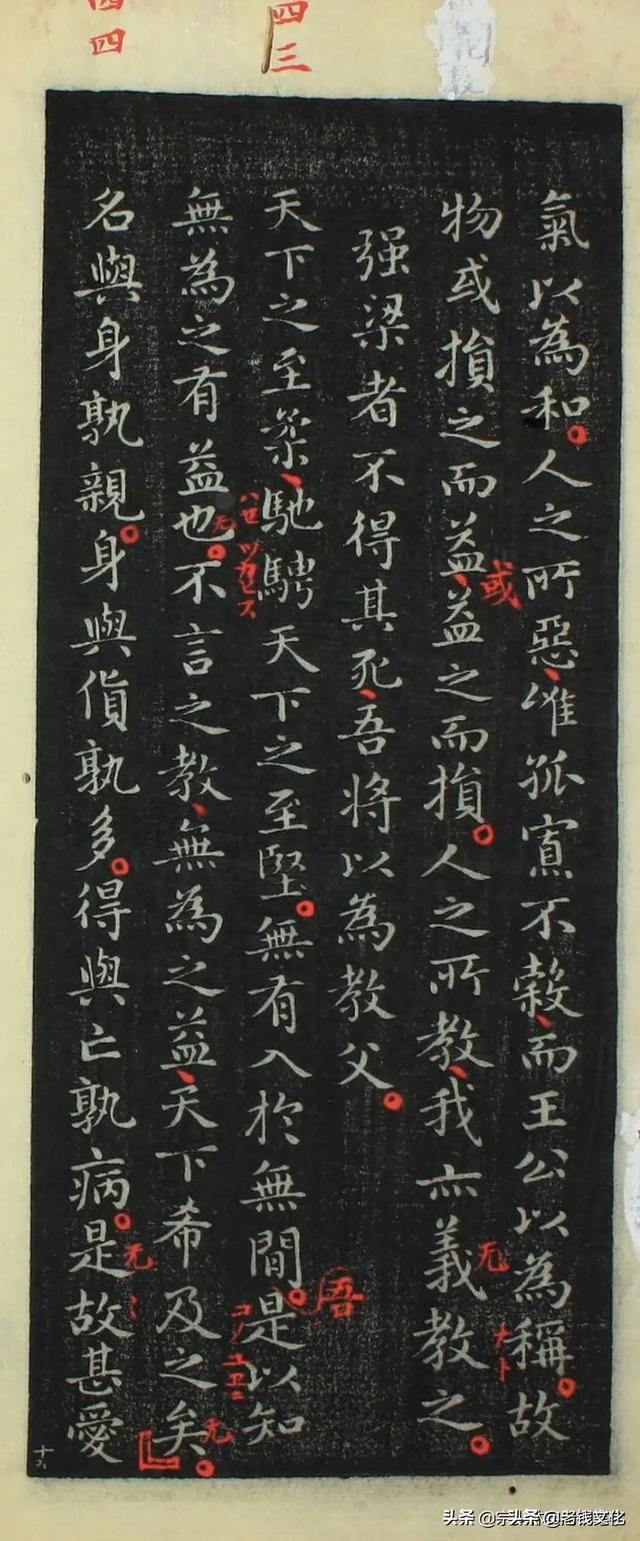 四三
四四
氣以為和人之所惡惟孤寡不穀而王公以為稱故
物或損之而益益之而損人之所教我亦義教之
强梁者不得其死吾將以為教父
天下之至柔馳騁天下之至堅無有入於無間是以知
無為之有益也不言之教無為之益天下希及之矣
名與身孰親身與貨孰多得與亡孰病是故甚愛
或
无
ナト
吾
ハセ ツカセス
コノユヱニ
无
无
无
十六
头条 @老钱文化